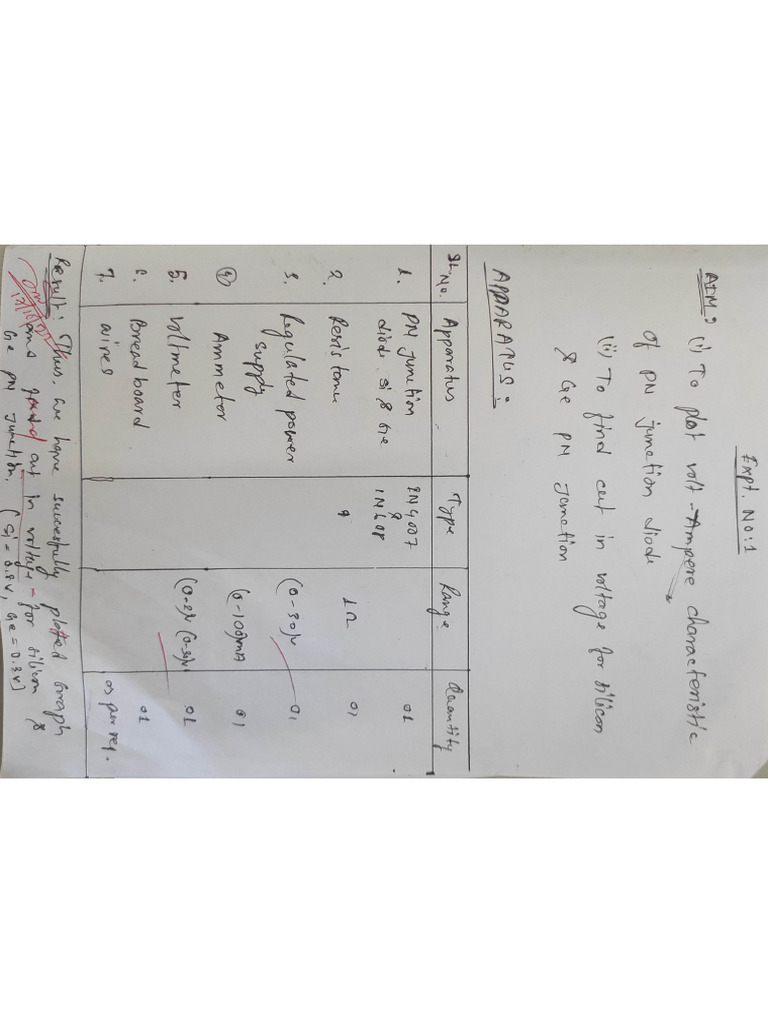 Expt. No:1
AIM: (i) To plot volt-Ampere characteristic
of PN junction diode
(ii) To find cut in voltage for silicon
& Ge PN junction
APPARATUS:
SL. No. Apparatus Type Range Quantity
1. PN junction diode. Si & Ge 1N4007 & 01
2. Resistance 1Ω 01
3. Regulated power supply (0-30)V 01
4) Ammeter (0-100)mA 01
5. Voltmeter (0-2)V (0-30)V 01
6. Bread board 01
7. wires as per req.
Result: Thus, we have sucessfully plotted Graph
and found cut in voltage for silicon &
Ge PN junction. (Si = 0.8V, Ge = 0.3V)